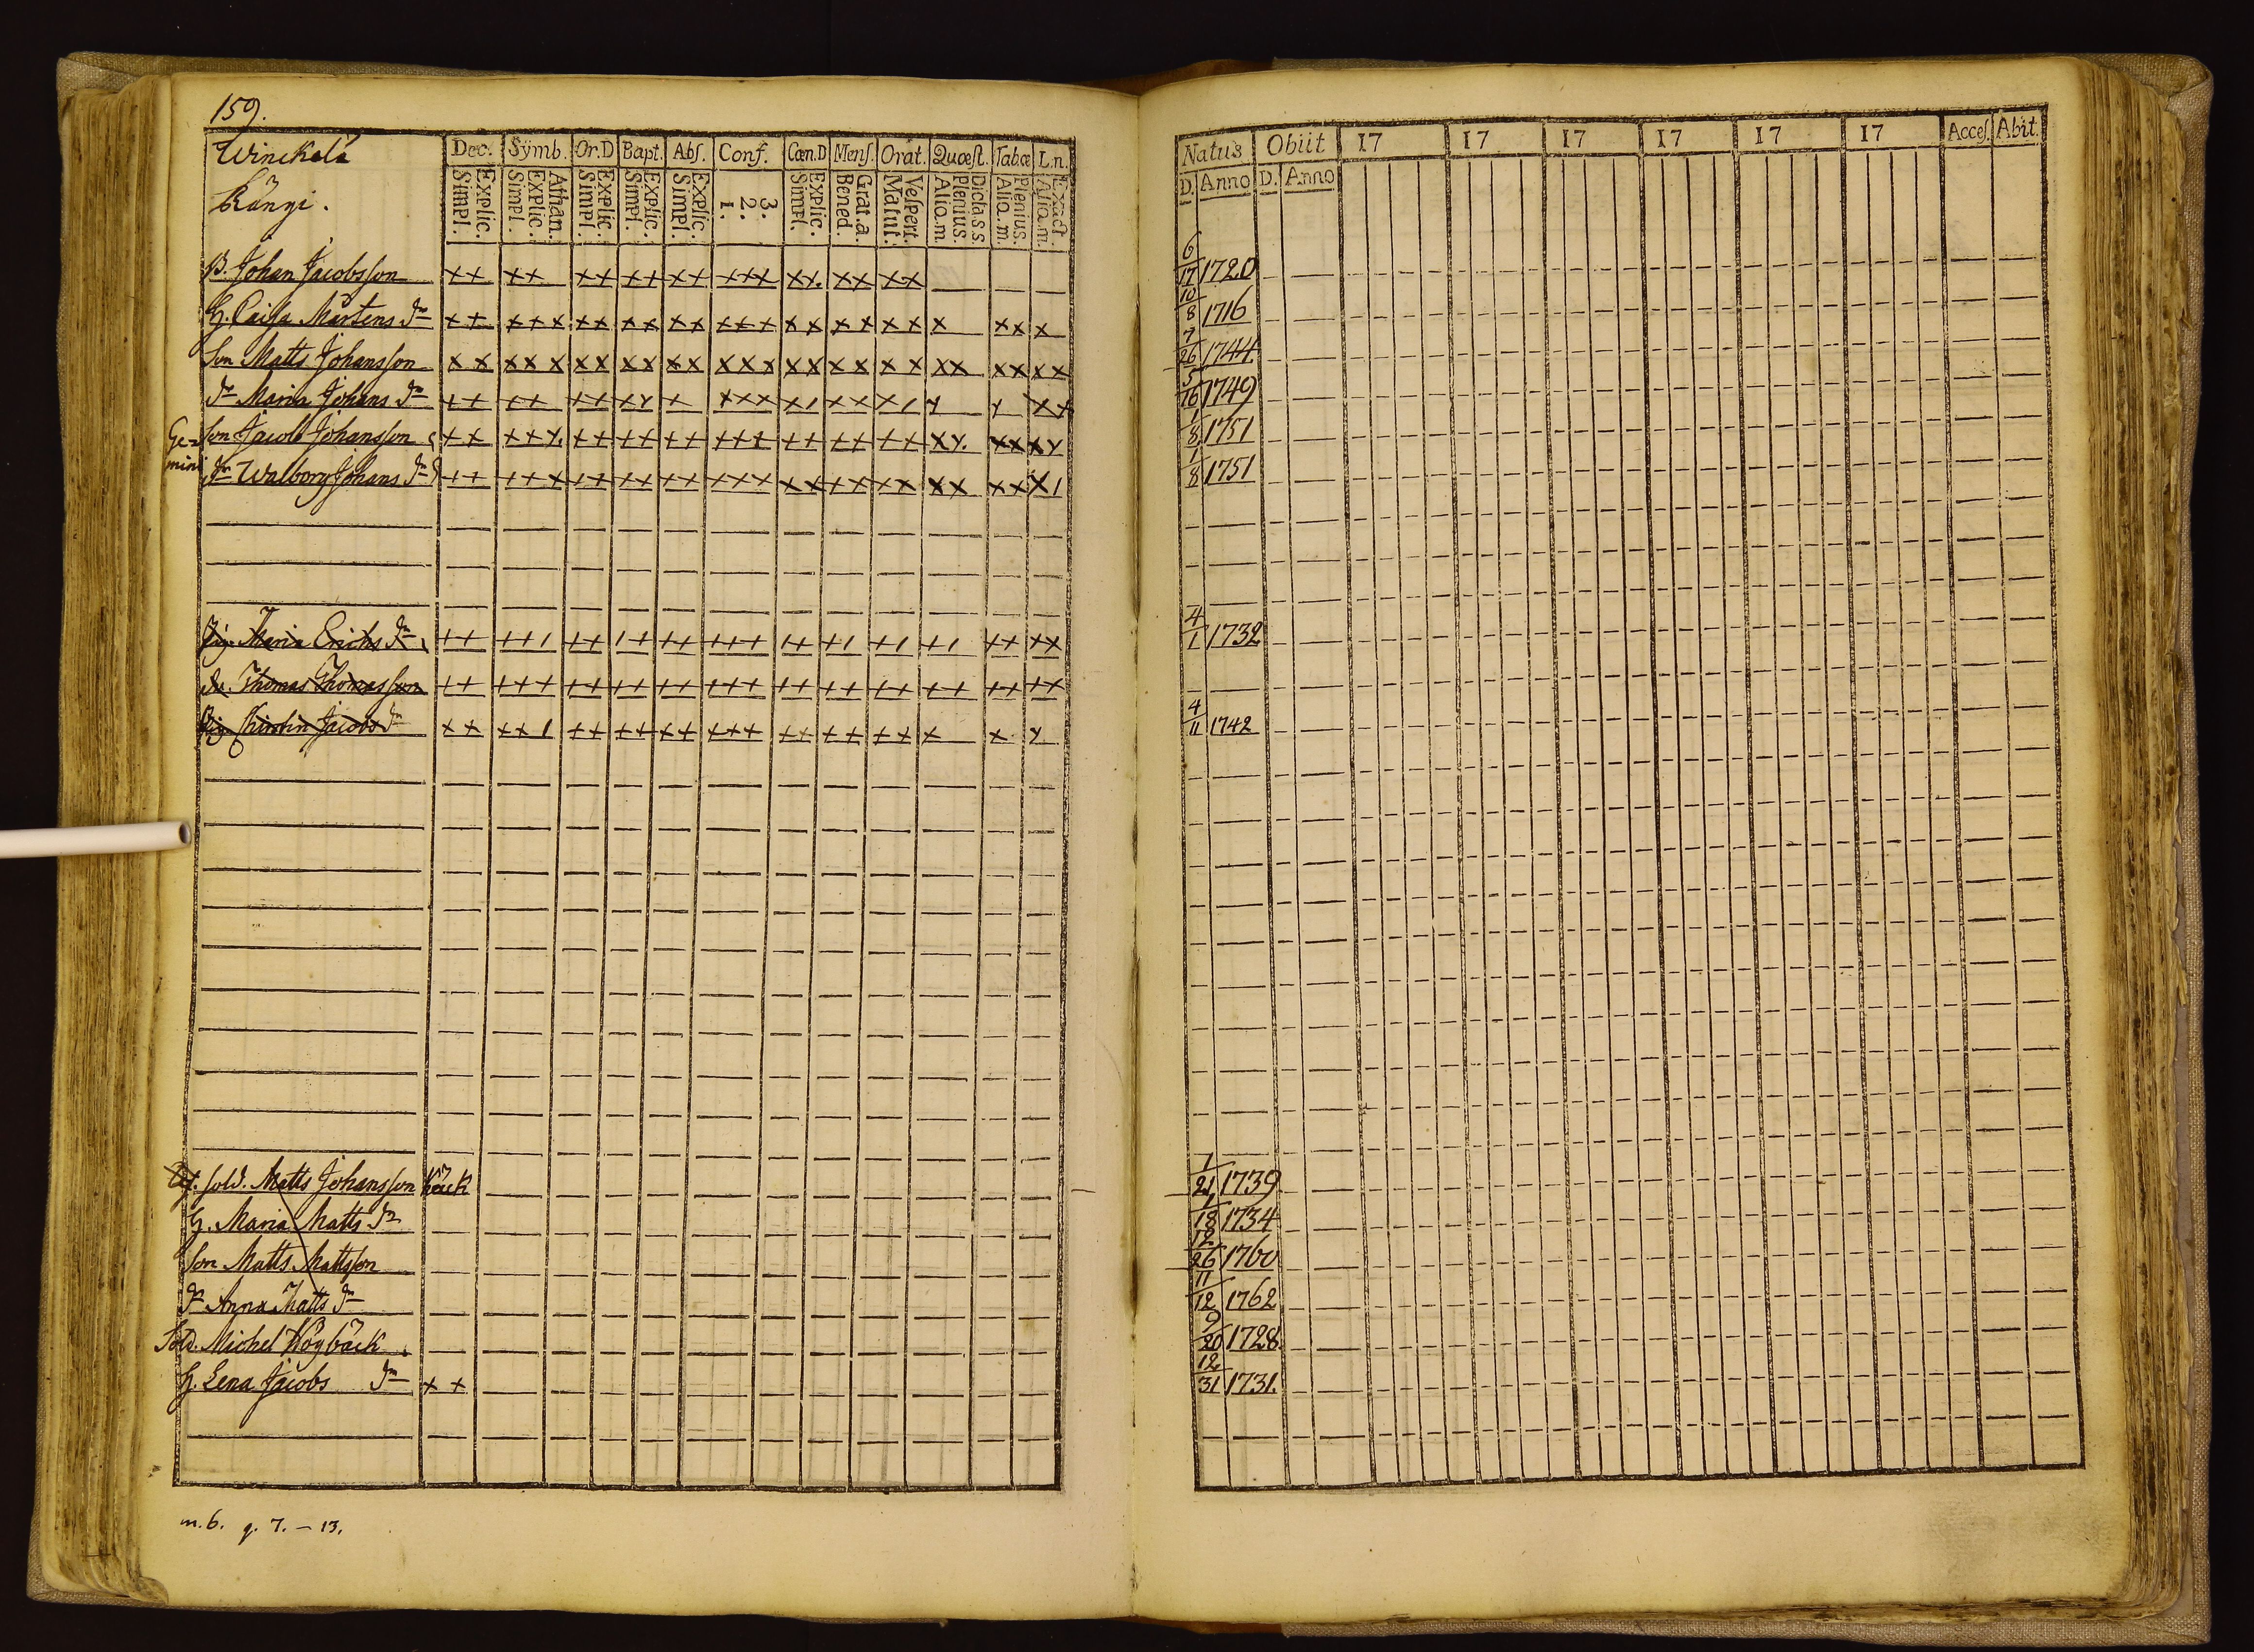 159.
Winckala
Rångi.
Dec. Symb. Or.D Bapt. Abs. Conf. Cœn.D Mens. Orat. Quæst. Tabæ L.n.
Explic. Simpl. Athan. Explic. Simpl. Explic. Simpl. Explic. Simpl. Explic. Simpl. 3. 2. 1. Explic. Simpl. Grat.a. Bened. Vespert. Matut. Dicta S.S. Plenius. Aliq.m. Plenius. Aliq.m. Exact. Aliq.m.
B. Johan Jacobsson
H. Caisa Mårtens dr
Son Matts Johansson
dr Maria Johans dr
Ge=
mini
Son Jacob Johansson
dr Walborg Johans dr
Pig. Maria Erichs dr
Dr. Thomas Thomasson
Pig. Christin Jacobs dr
Af. Sold. Matts Johansson Bäck
H. Maria Matts dr
Son Matts Mattsson
dr Anna Matts dr
Sold. Michel Högbäck
H. Lena Jacobs dr
m. 6. q. 7. – 13.
Natus Obiit 17 17 17 17 17 17 Acces. Abit.
D. Anno D. Anno
6/17 1720
10/8 1716
7/26 1744
5/16 1749
1/8 1751
1/8 1751
4/1 1732
4/11 1742
1/21 1739
1/18 1734
12/26 1760
11/12 1762
9/20 1728
12/31 1731.